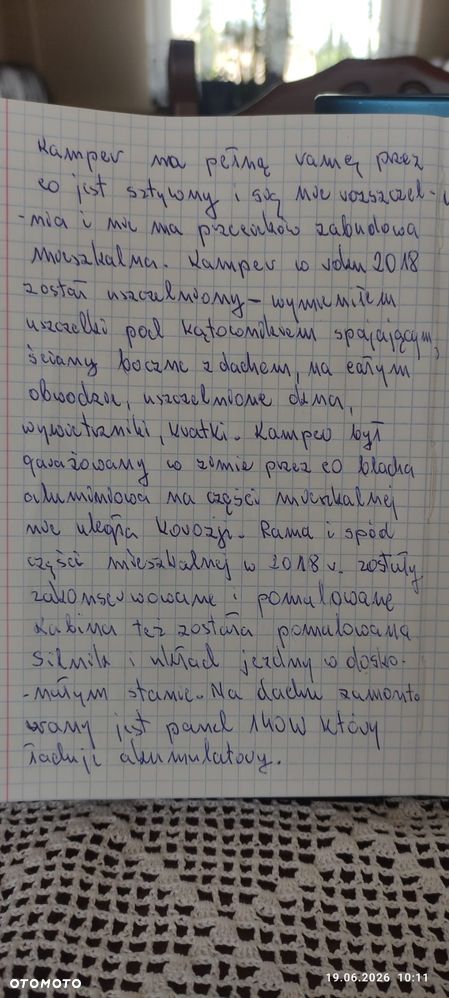 Kamper ma pełną ramę przez
co jest sztywny i się nie rozszczel-
-nia i nie ma przecieków zabudowa
mieszkalna. Kamper w roku 2018
został uszczelniony - wymieniłem
uszczelki pod kątownikiem spajającym
ściany boczne z dachem, na całym
obwodzie, uszczelnione okna,
wywietrzniki, kratki. Kamper był
garażowany w zimie przez co blacha
aluminiowa na części mieszkalnej
nie uległa korozji. Rama i spód
części mieszkalnej w 2018 r. zostały
zakonserwowane i pomalowane
Kabina też została pomalowana
Silnik i układ jezdny w dosko-
-nałym stanie. Na dachu zamonto
wany jest panel 140W który
ładuje akumulatory.
OTOMOTO
19.06.2026 10:11